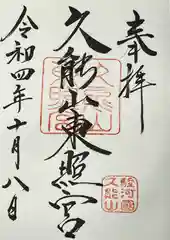 奉拝
久能山東照宮
令和四年十月八日
駿河國
久能山